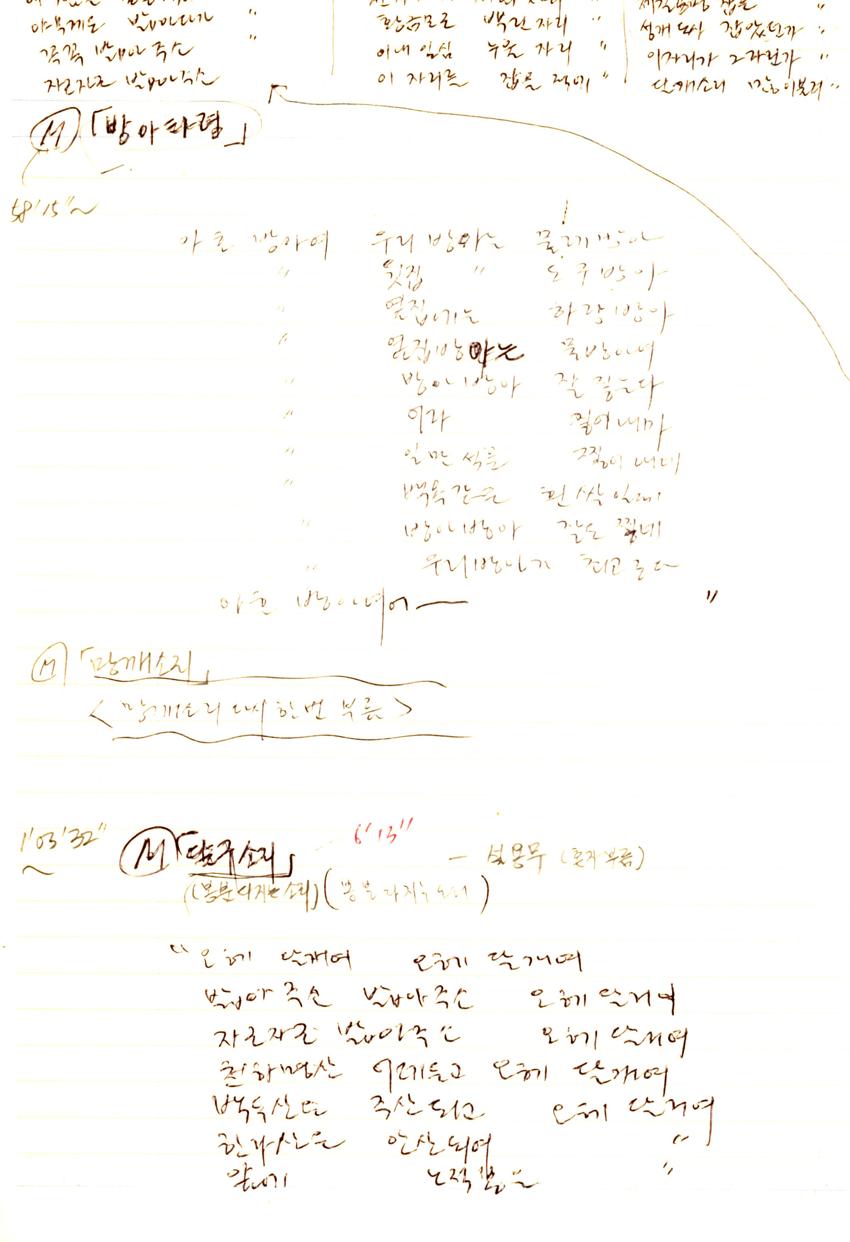 야무게도 밟아다가 "
꼭꼭 밟아주소
자근자근 밟아주소
황금으로 백힌 자리 "
이내 일심 누운 자리 "
이 자리를 잡을 적에 "
성개도사 잡았던가 "
이자리가 그자런가 "
달개소리 많이 불러 "
Ⓜ 「방아타령」
58'15"~
아흐 방아여 우리 방아는 물레방아
" 윗집 " 도구방아
" 옆집에는 하랑방아
" 옆집방아는 물방아여
" 방아방아 잘 찧는다
" 어라 찧어내마
" 일만석을 찧어내네
" 백옥같은 흰쌀일네
" 방아방아 잘도 찧네
" 우리방아가 최고로다
아흐 방아여어 — "
Ⓜ 「망깨소리」
< 망깨소리 다시 한번 부름 >
1'03'32" ~
Ⓜ 「달구소리」 6'13"
— 용무 (혼자부름)
(봉분다지는 소리) (봉분다지는 소리)
" 오헤 달개여 오헤 달개여
밟아주소 밟아주소 오헤 달개여
자근자근 밟아주소 오헤 달개여
천하명산 오헤 달개여
백두산은 주산되고 오헤 달개여
한라산은 안산되여 "
앞에 노적봉은 "